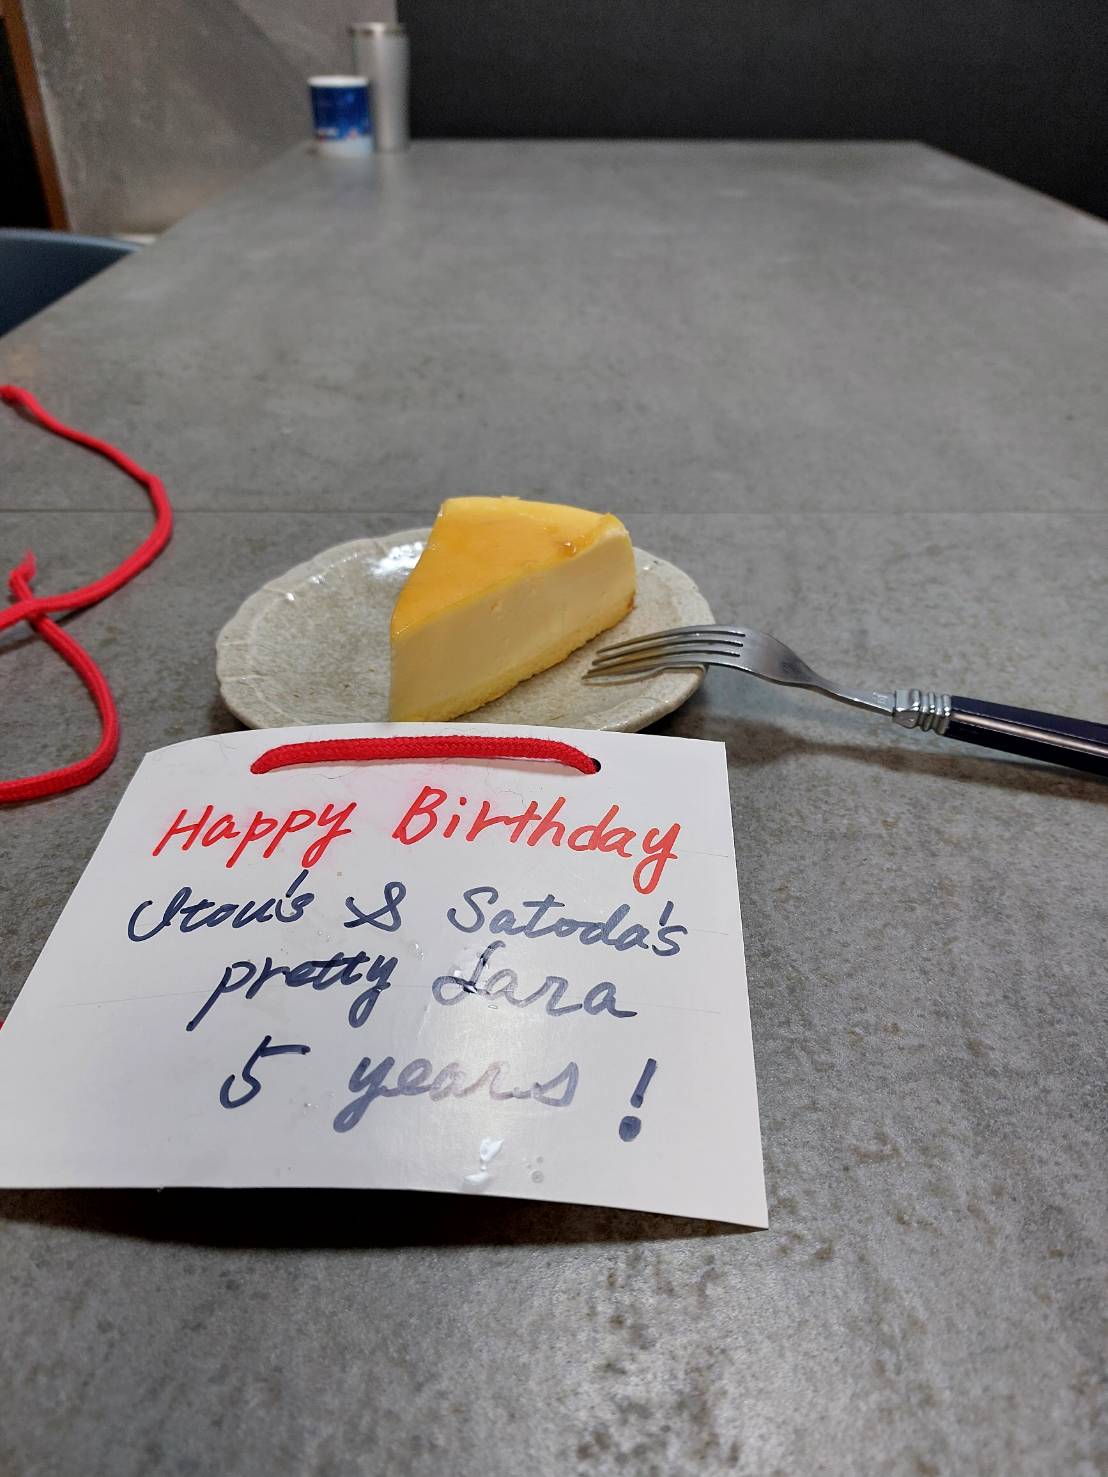 Happy Birthday
Itou's & Satoda's
pretty Lara
5 years!